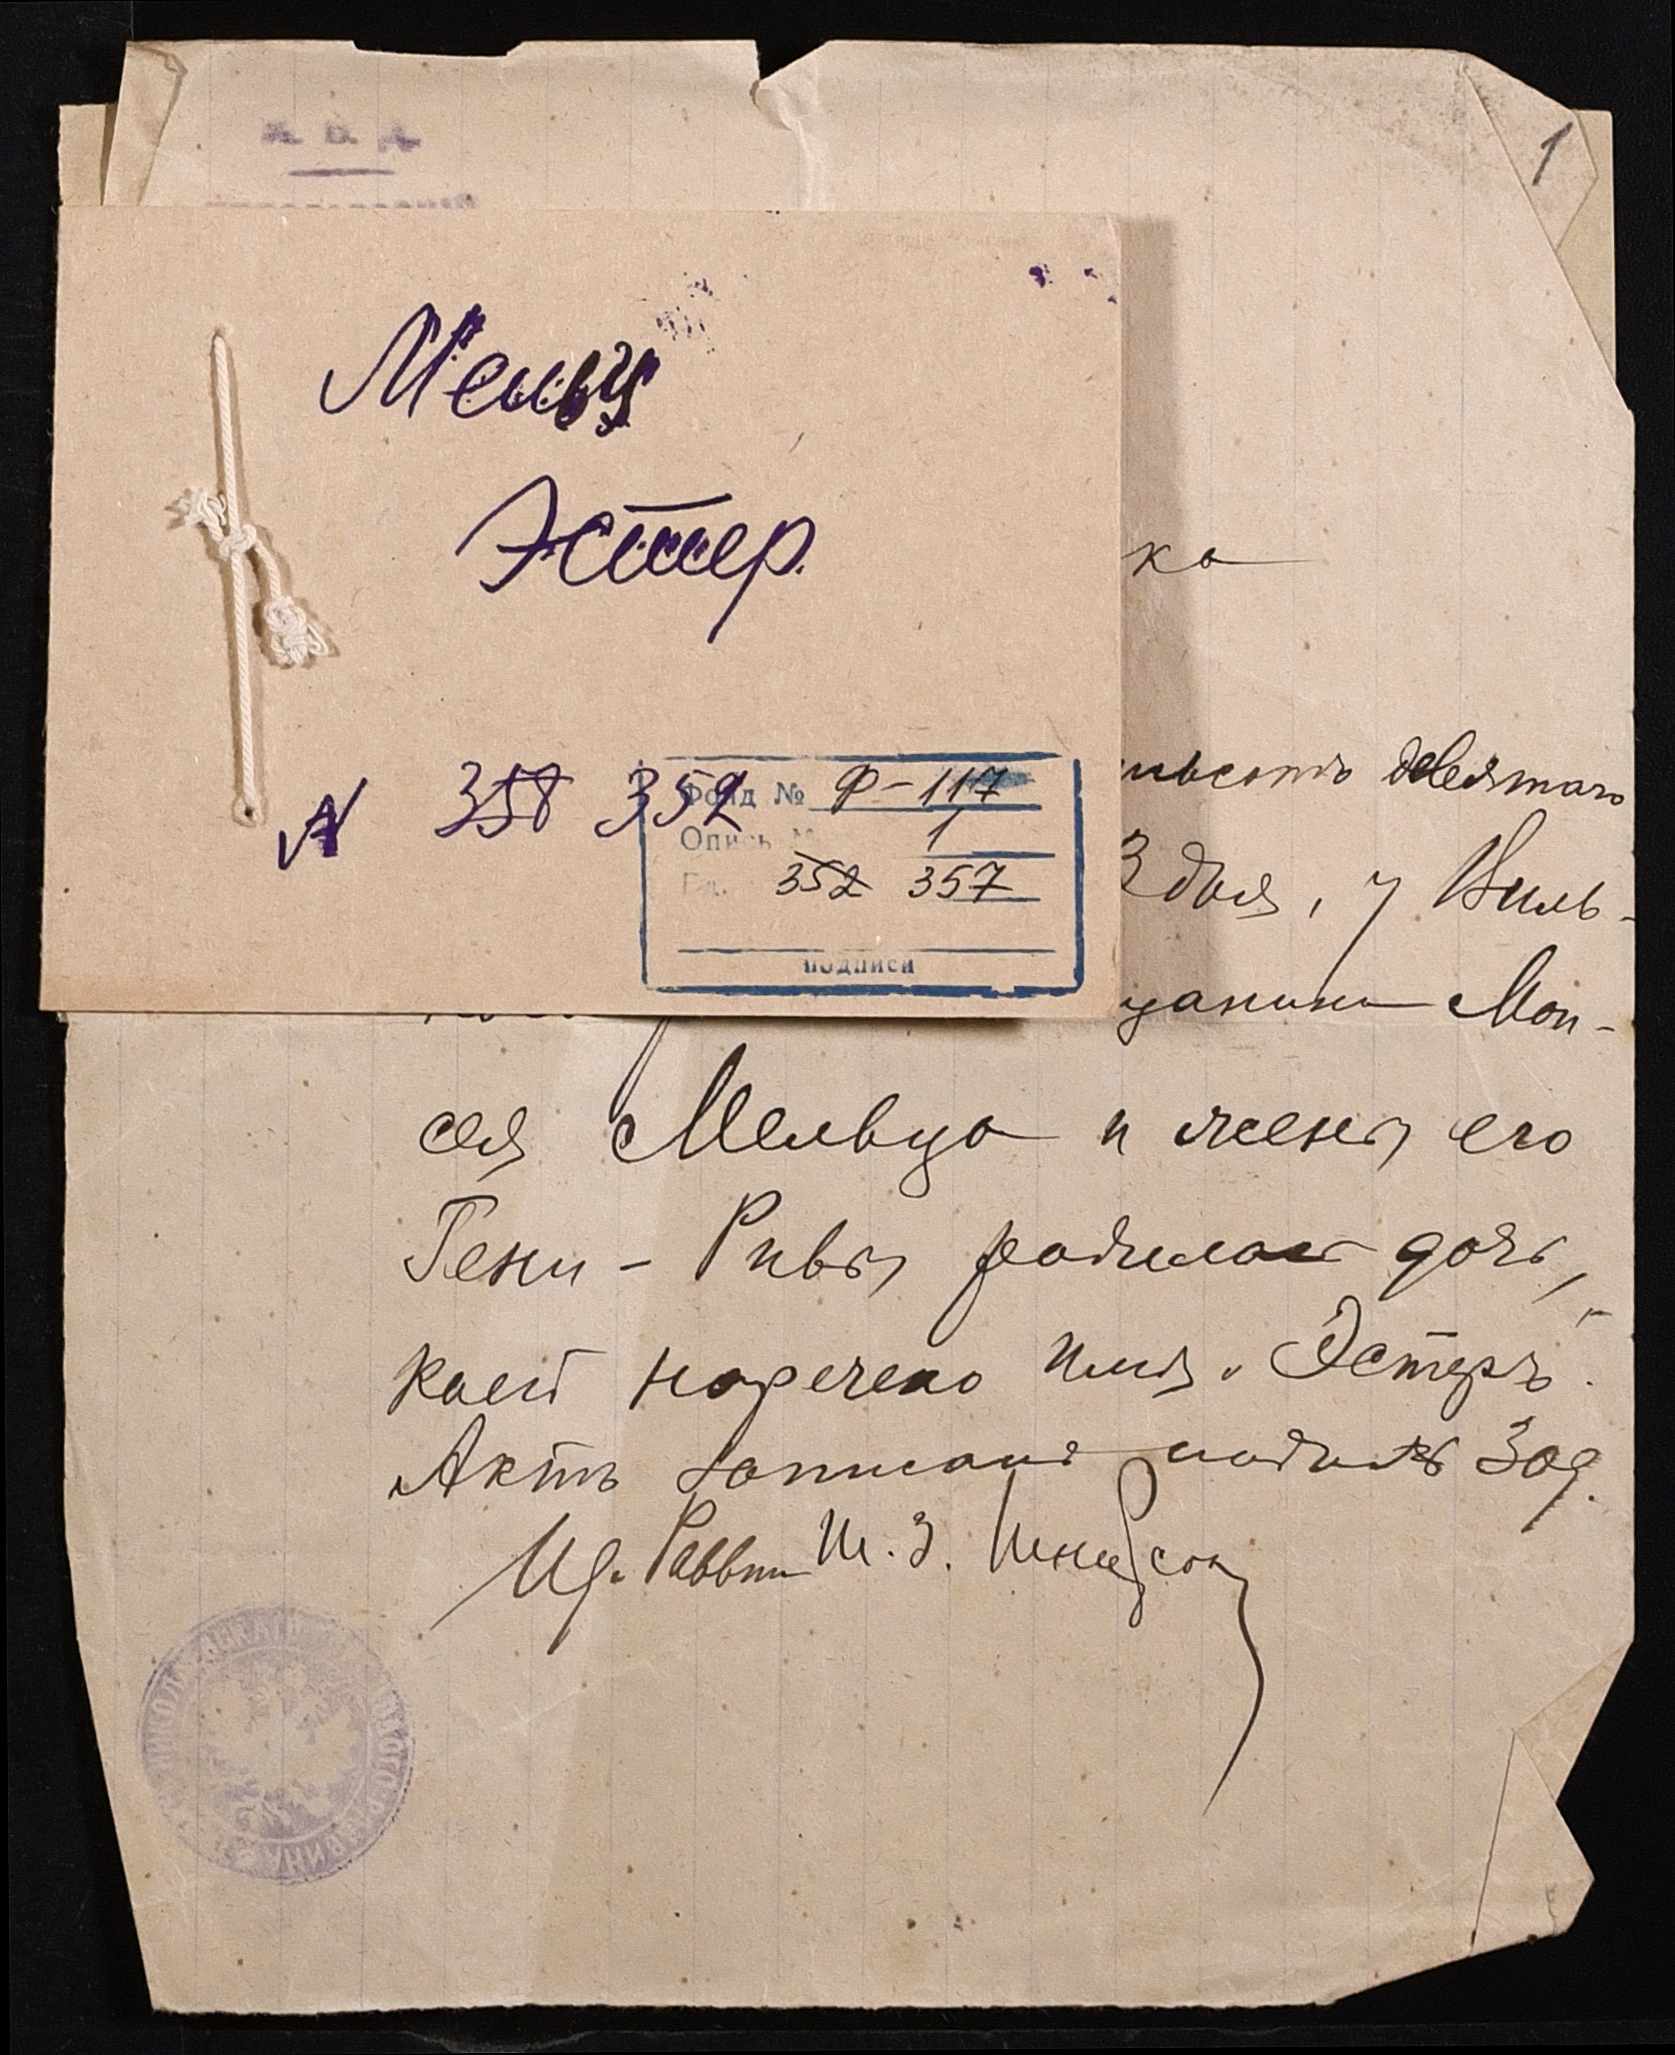 1
М. В. Д.
Мельц
Эстер.
№ 358 352
Фонд № Ф-117
Опись № 1
352 357
подписи
ка
девятаго
3 дня, у Виль-
Мои-
сея Мельца и жены его
Гени - Ривы родилась дочь,
коей наречено имя Эстеръ.
Актъ записанъ подъ № 30 д.
И. д. Раввина Ш. З. Шнеерсонъ